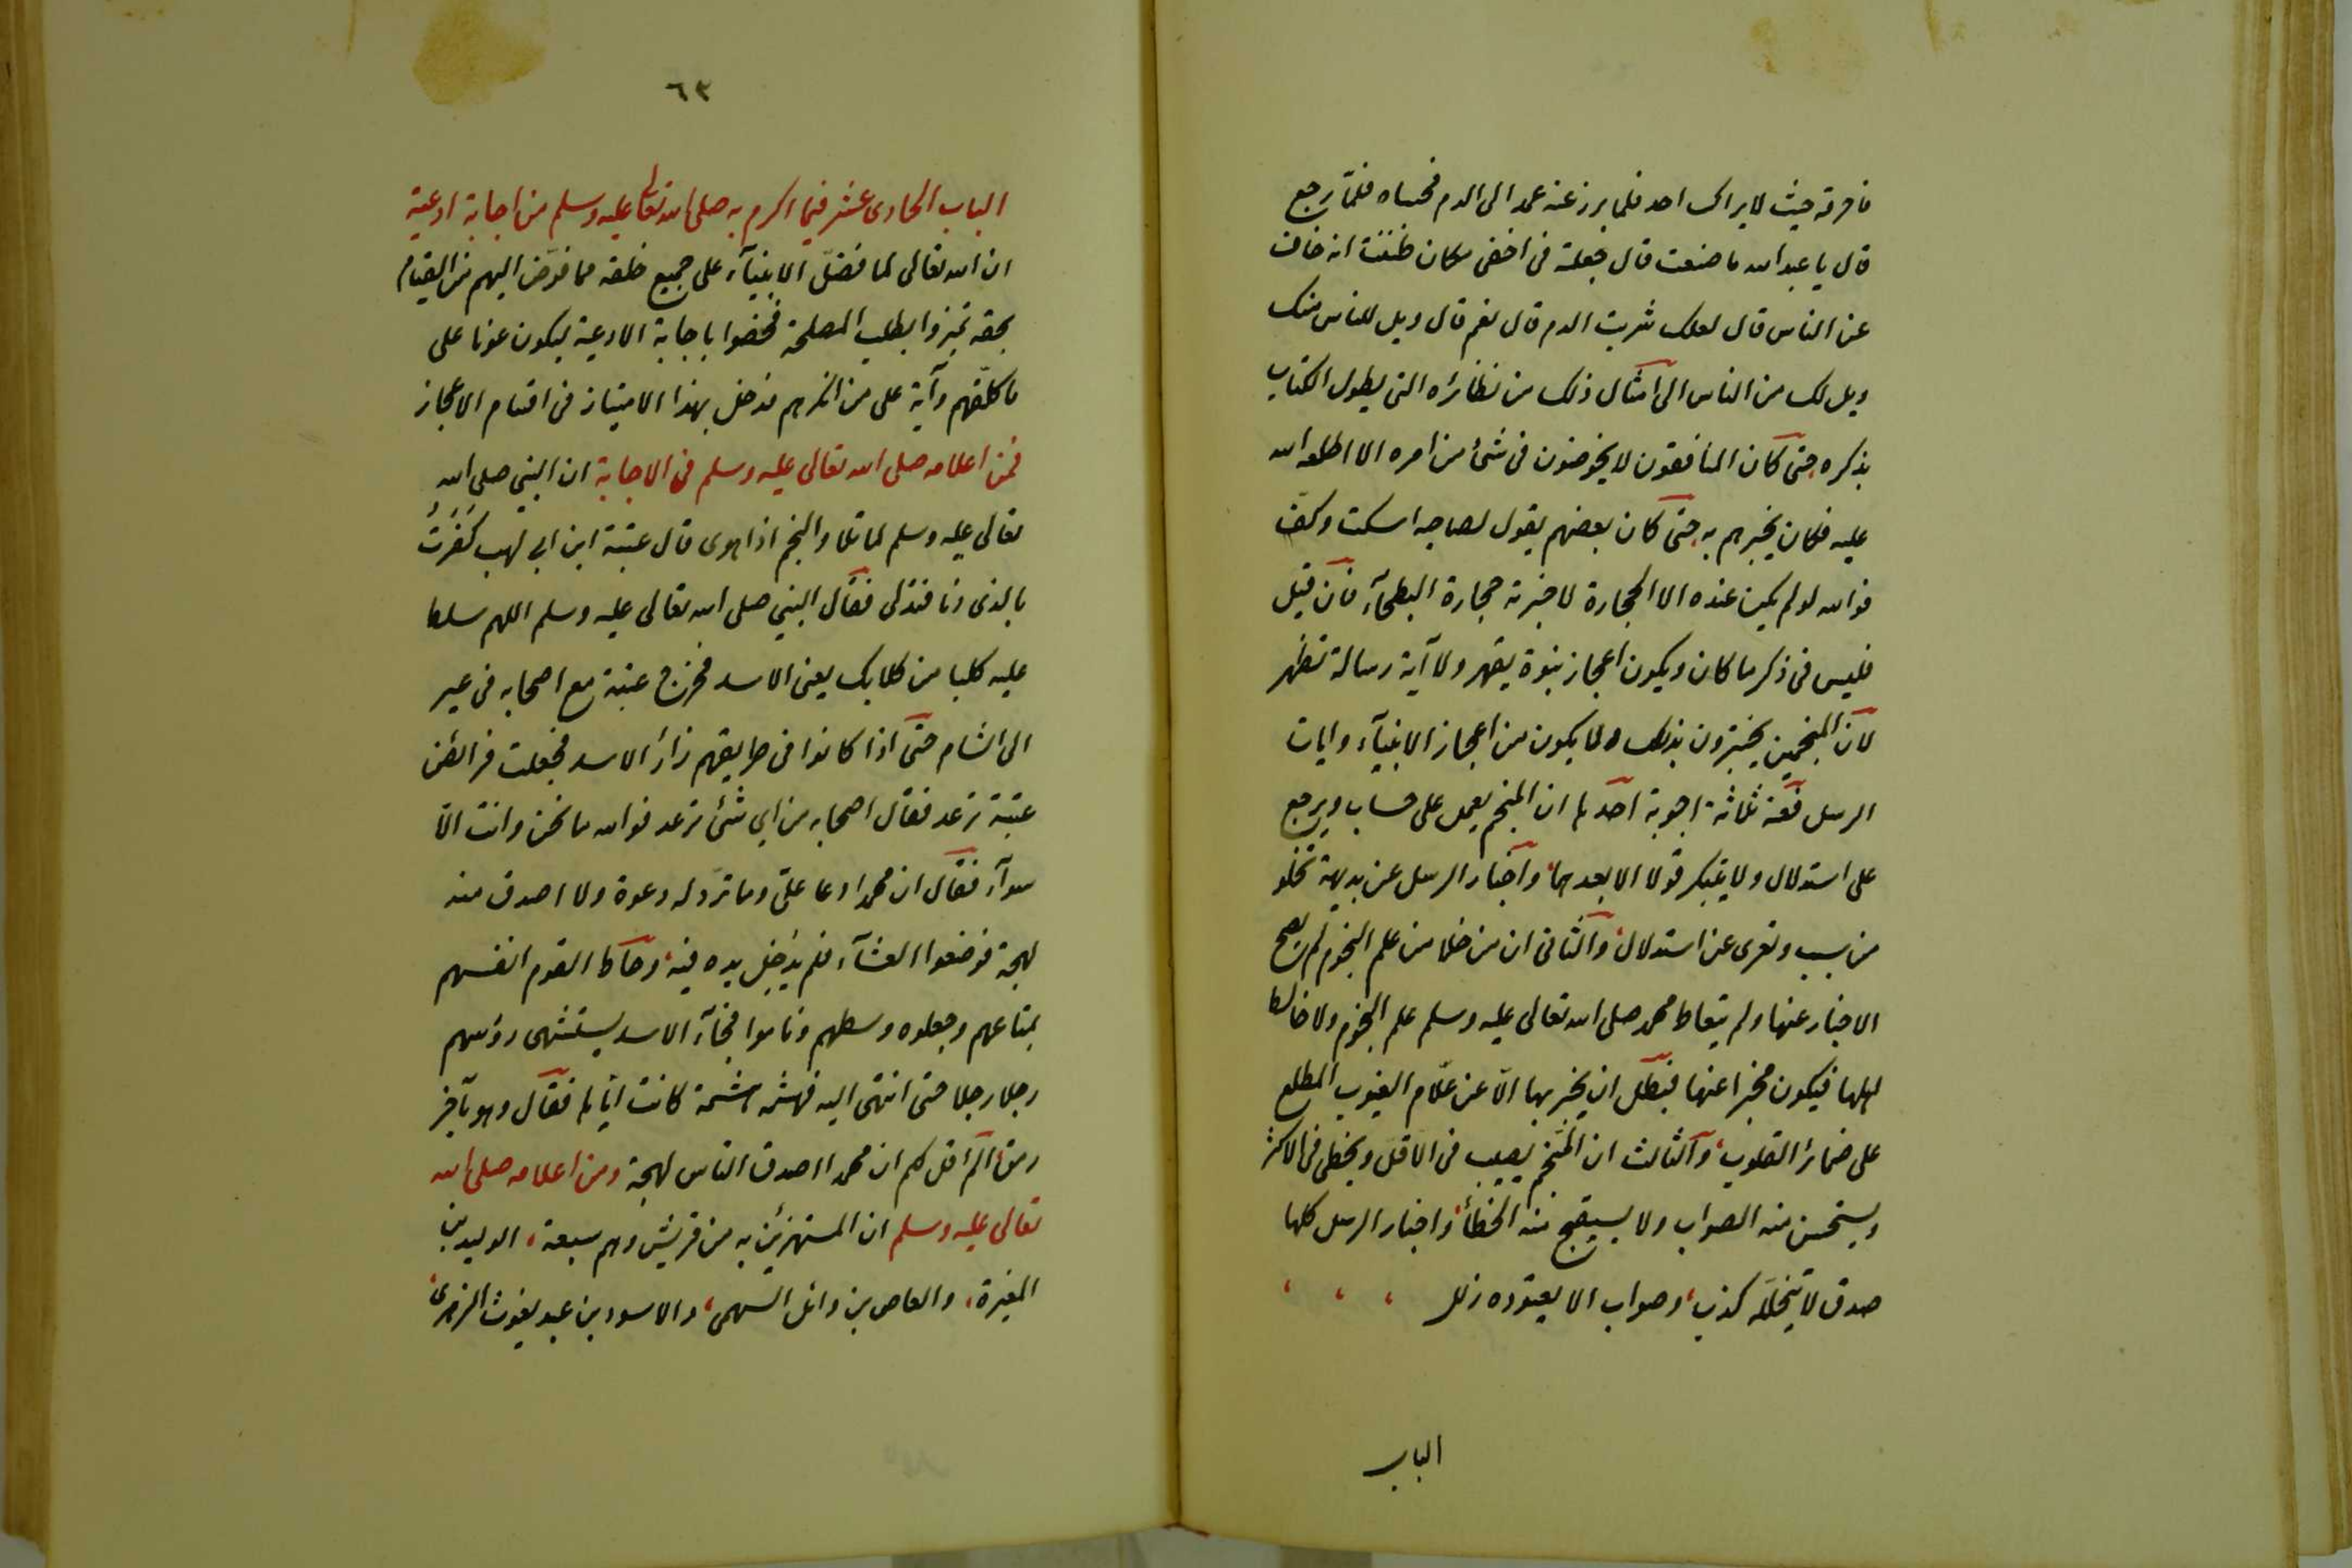 فاهرقه حيث لا يراك احد فلما برز عنه عمد الى الدم فحساه فلمّا رجع
قال يا عبد الله ما صنعت قال جعلته فى اخفى مكان ظننت انه خاف
عن الناس قال لعلك شربت الدم قال نعم قال ويل للناس منك
ويل لك من الناس الى امثال ذلك من نظائره التى يطول الكتاب
بذكره حتى كان المنافقون لا يخوضون فى شئ من امره الا اطلعه الله
عليه فكان يخبرهم به حتى كان بعضهم يقول لصاحبه اسكت وكفّ
فوالله لو لم يكن عنده الا الحجارة لاخبرته حجارة البطحآء فان قيل
فليس فى ذكر ما كان ويكون اعجاز بنوة يقهر ولا آية رسالة تظهر
لان المنجمين يخبرون بذلك ولا يكون من اعجاز الانبيآء وايات
الرسل فعنه ثلاثة اجوبة احدها ان المنجم يعمل على حساب ويرجع
على استدلال ولا يبتكر قولا الا بعدهما، واخبار الرسل عن بديهة تخلو
من سبب وتعرى عن استدلال، والثانى ان من خلا من علم النجوم لم يصح
الاخبار عنها ولم يتعاط محمد صلى الله تعالى عليه وسلم علم النجوم ولا خالط
اهلها فيكون مخبرا عنها فبطل ان يخبر بها الّا عن علّام الغيوب المطلع
على ضمائر القلوب، والثالث ان المنجم يصيب فى الاقل ويخطى فى الاكثر
ويستحسن منه الصواب ولا يستقبح منه الخطأ، واخبار الرسل كلها
صدق لا يتخلّله كذب، وصواب لا يعتوره زلل ، ، ،
الباب
٦٣
الباب الحادى عشر فيما اكرم به صلى الله تعالى عليه وسلم من اجابة ادعيته
ان الله تعالى لما فضّل الانبيآء على جميع خلقه مما فوّض اليهم من القيام
بحقه تميزوا بطلب المصلحة فخصوا باجابة الادعية ليكون عونا على
ما كلّفهم وآية على من انكرهم فدخل بهذا الامتياز فى اقسام الاعجاز
فمن اعلامه صلى الله تعالى عليه وسلم فى الاجابة ان النبي صلى الله
تعالى عليه وسلم لما تلا والنجم اذا هوى قال عتبة ابن ابى لهب كَفَرتُ
بالذى دنا فتدلى فقال النبي صلى الله تعالى عليه وسلم اللهم سلط
عليه كلبا من كلابك يعنى الاسد فخرج عتبة مع اصحابه فى عير
الى الشام حتى اذا كانوا فى طريقهم زأر الاسد فجعلت فرائص
عتبة ترعد فقال اصحابه من اي شئ ترعد فوالله ما نحن وانت الّا
سوآء فقال ان محمدا دعا علىّ وما تردّ له دعوة ولا اصدق منه
لهجة فوضعوا العشآء فلم يدخل يده فيه، وحاط القوم انفسهم
بمتاعهم وجعلوه وسطهم وناموا فجآء الاسد يستنشى رؤسهم
رجلا رجلا حتى انتهى اليه فهشمه هشمة كانت اياها فقال وهو بآخر
رمق، الم اقل لكم ان محمدا اصدق الناس لهجة ومن اعلامه صلى الله
تعالى عليه وسلم ان المستهزئين به من قريش وهم سبعة، الوليد بن
المغيرة، والعاص بن وائل السهمى، والاسود بن عبد يغوث الزهرى،